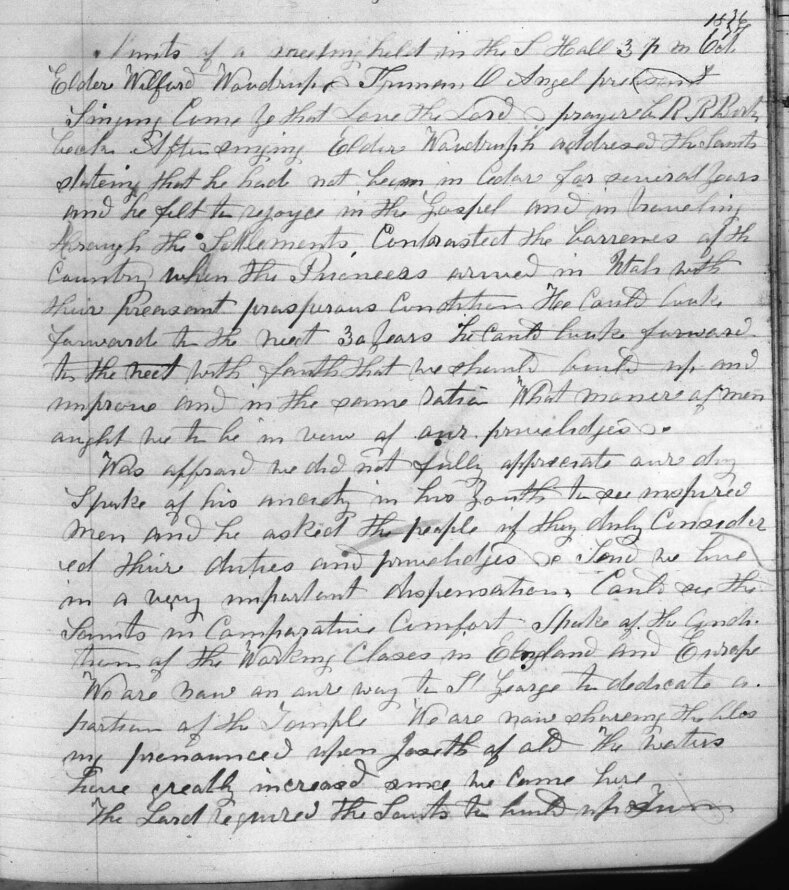 1876
Minuts of a meeting held in the S Hall 3 p m Oct
Elder Wilford Woodruph & Truman O Angel present
Singing Come Ye that Love the Lord & prayer by R R Birk
beck After singing Elder Woodruph addressed the Saints
stateing that he had not been in Cedar for several years
and he felt to rejoyce in the Gospel and in traveling
through the Settlements Contrasted the barrenes of the
Country when the Pioneers arrived in Utah with
their preasant prosperous Condition He could look
forward to the next 30 years he could look forward
to the next with faith that we should build up and
improve and in the same ratio What manere of men
aught we to be in view of our priveliedges &
Was affraid we did not fully appreciate oure day
Spoke of his anciety in his Youth to see inspired
men and he asked the people if they duly Consider
ed their duties and priveliedges & Said we live
in a very important dispensation Could see the
Saints in Comparative Comfort Spoke of the Condi
tion of the Working Clases in England and Europe
We are now on oure way to St George to dedicate a
portion of the Temple We are now shareing the bles
ing pronounced upon Joseth of old The waters
have greatly increased since we came here
The Lord required the Saints to build up